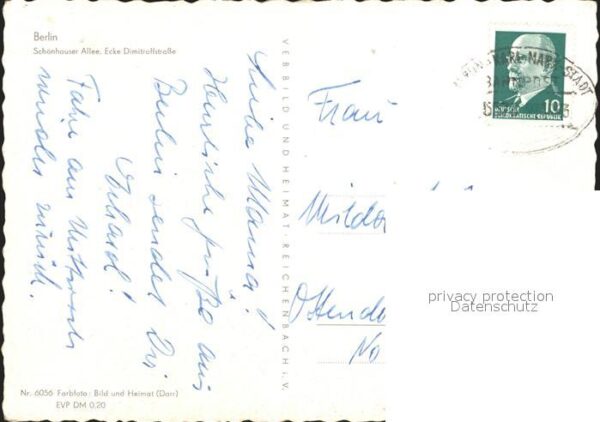 Berlin
Schönhauser Allee, Ecke Dimitroffstraße
Liebe Mama!
Herzliche Grüße aus
Berlin sendet Dir
Fahre am Mittwoch
wieder zurück.
VEB BILD UND HEIMAT · REICHENBACH i. V.
Nr. 6056 Farbfoto: Bild und Heimat (Darr)
EVP DM 0,20
KARL-MARX-STADT
BAHNPOST
10
DEUTSCHE
DEMOKRATISCHE REPUBLIK
Frau
Milda
Ottendo
No
privacy protection
Datenschutz